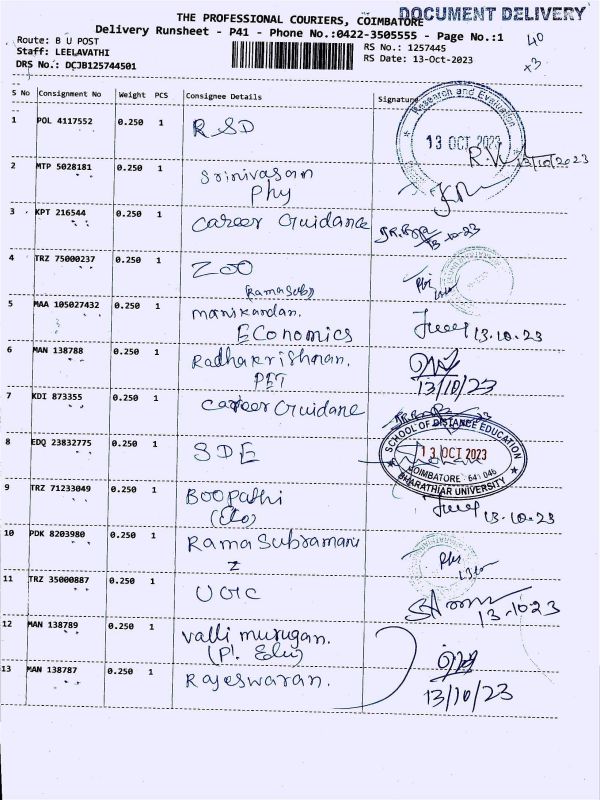 DOCUMENT DELIVERY
THE PROFESSIONAL COURIERS, COIMBATORE
Delivery Runsheet - P41 - Phone No.:0422-3505555 - Page No.:1
Route: B U POST
RS No.: 1257445
40
Staff: LEELAVATHI
RS Date: 13-Oct-2023
x3
DRS No.: DCJB125744501
S No Consignment No Weight PCS Consignee Details Signature
1 POL 4117552 0.250 1 RSD
Research and Evaluation
13 OCT 2023
13/10/2023
2 MTP 5028181 0.250 1 Srinivasan
Phy
3 KPT 216544 0.250 1 Career Guidance
13-10-23
4 TRZ 75000237 0.250 1 ZOO
(Ramasub)
5 MAA 105027432 0.250 1 manikandan.
Economics
13.10.23
6 MAN 138788 0.250 1 Radhakrishnan.
PET
13/10/23
7 KDI 873355 0.250 1 career Guidane
8 EDQ 23832775 0.250 1 SDE
SCHOOL OF DISTANCE EDUCATION
13 OCT 2023
COIMBATORE - 641 046
BHARATHIAR UNIVERSITY
9 TRZ 71233049 0.250 1 Boopathi
(Eco)
13.10.23
10 PDK 8203980 0.250 1 Rama Subramani
Z
11 TRZ 35000887 0.250 1 UGC
13-10-23
12 MAN 138789 0.250 1 Valli murugan.
13 MAN 138787 0.250 1 Rajeswaran.
13/10/23